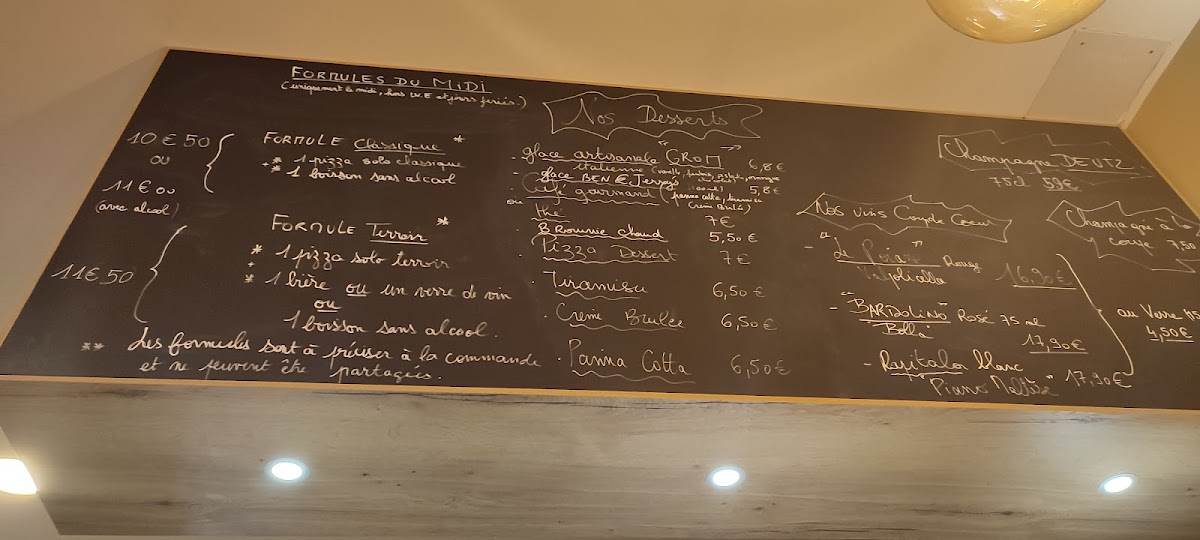 FORMULES DU MIDI
(uniquement le midi, hors W.E et jours feriés.)
10 € 50
ou
11 € ou
(avec alcool)
FORMULE Classique *
* 1 pizza solo classique
+
* 1 boisson sans alcool
11€50
FORMULE Terroir *
* 1 pizza solo terroir
+
* 1 bière ou un verre de vin
ou
1 boisson sans alcool.
** Les formules sont à préciser à la commande
et ne peuvent être partagées.
Nos Desserts
- glace artisanale "GROM" 6,8€
italienne (vanille,
- glace BEN & Jerry's 5,8€
- Café gourmand (panna cotta, tiramisu
ou Crème Brulée)
thé 7€
- Brownie chaud 5,50€
- Pizza Dessert 7€
- Tiramisu 6,50€
- Creme Brulée 6,50€
- Panna Cotta 6,50€
Champagne DEUTZ
75cl 59€
Nos vins Coup de Coeur
Champagne à la
coupe 7,50
- "Le Poiano" Rouge
Valpolicella 16,90€
- "BARDOLINO Rosé 75 ml
Bolla" 17,90€
- Rapitala blanc
"Piano Maltese" 17,90€
au Verre
4,50€